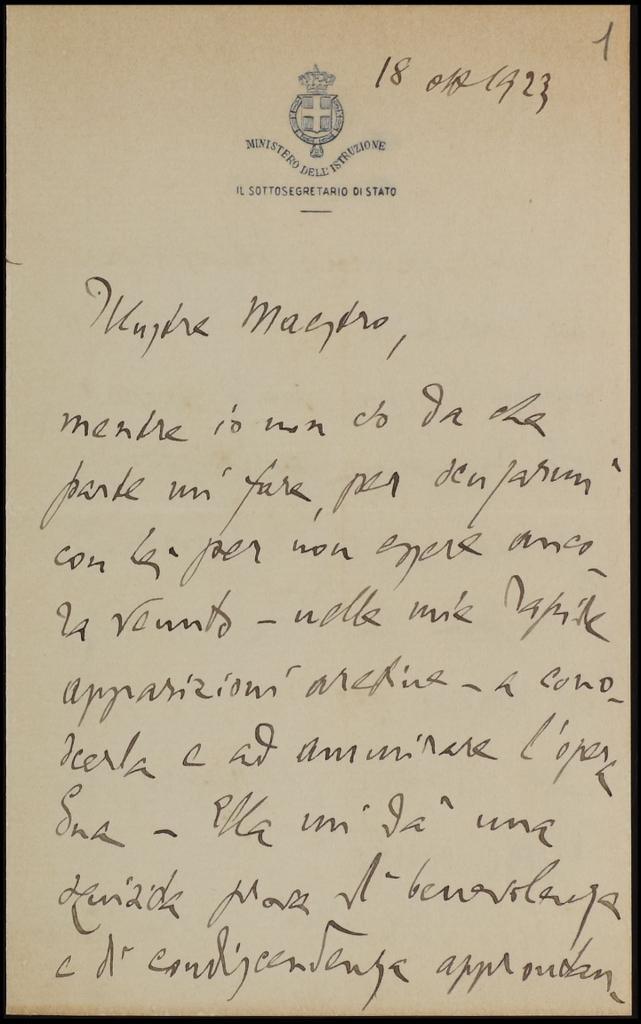 1
18 ott 1923
MINISTERO DELL'ISTRUZIONE
IL SOTTOSEGRETARIO DI STATO
Illustre Maestro,
mentre io non so da che
parte mi fare, per scusarmi
con lei per non essere anco-
ra venuto – nelle mie rapide
apparizioni aretine – a cono-
scerla e ad ammirare l'opera
Sua – Ella mi dà una
squisita prova di benevolenza
e di condiscendenza approntan-